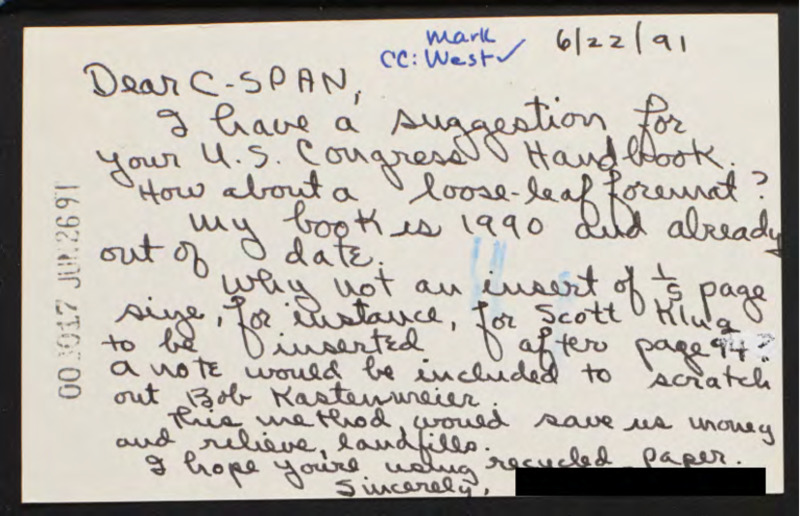 mark
CC: West✓
6/22/91
Dear C-SPAN,
I have a suggestion for
your U.S. Congress Handbook.
How about a loose-leaf foremat?
My book is 1990 and already
out of date.
Why not an insert of 1/5 page
size, for instance, for Scott Klug
to be inserted after page 94?
a note would be included to scratch
out Bob Kastenmeier.
This method would save us money
and relieve landfills.
I hope you're using recycled paper.
Sincerely,
003017 JUN 26 91